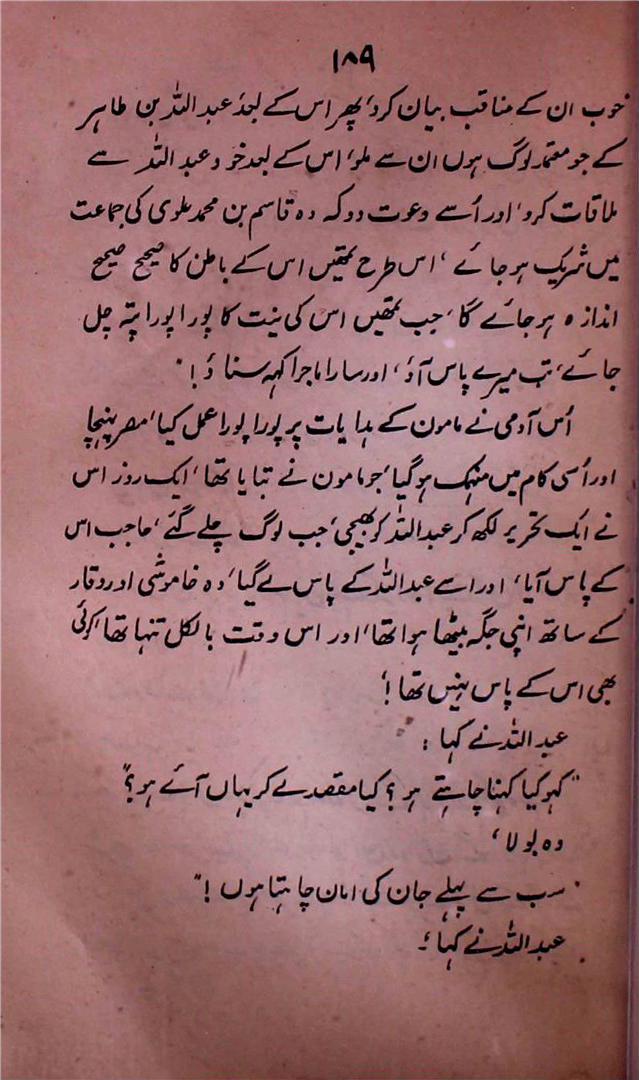 ۱۸۹
خوب ان کے مناقب بیان کرو، پھر اس کے بعد عبداللہ بن طاہر
کے جو معتمد لوگ ہوں ان سے ملو، اس کے بعد خود عبداللہ سے
ملاقات کرو، اور اُسے دعوت دو کہ وہ قاسم بن محمد علوی کی جماعت
میں شریک ہو جائے، اس طرح تمھیں اس کے باطن کا صحیح صحیح
اندازہ ہو جائے گا، جب تمھیں اس کی نیت کا پورا پورا پتہ چل
جائے، تب میرے پاس آؤ، اور سارا ماجرا کہہ سناؤ!"
اُس آدمی نے مامون کے ہدایات پر پورا پورا عمل کیا، مصر پہنچا
اور اُسی کام میں منہمک ہو گیا، جو مامون نے بتایا تھا، ایک روز اس
نے ایک تحریر لکھ کر عبداللہ کو بھیجی، جب لوگ چلے گئے، حاجب اس
کے پاس آیا، اور اسے عبداللہ کے پاس لے گیا، وہ خاموشی اور وقار
کے ساتھ اپنی جگہ بیٹھا ہوا تھا، اور اس وقت بالکل تنہا تھا، کوئی
بھی اس کے پاس نہیں تھا!
عبداللہ نے کہا:
"کہو کیا کہنا چاہتے ہو؟ کیا مقصد لے کر یہاں آئے ہو؟"
وہ بولا،
"سب سے پہلے جان کی امان چاہتا ہوں!"
عبداللہ نے کہا:۔